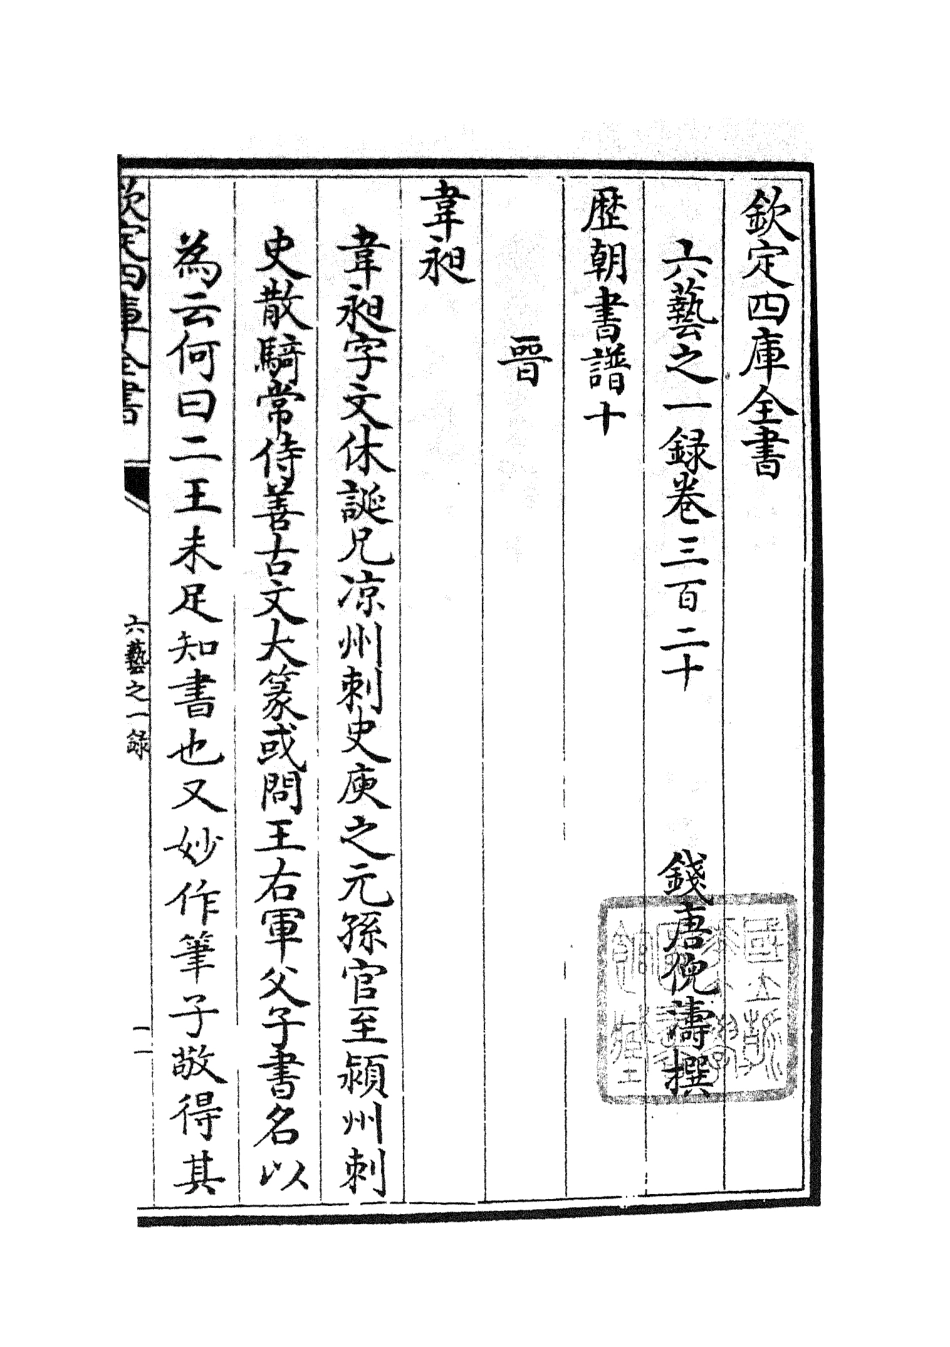 欽定四庫全書
六藝之一録卷三百二十
錢唐倪濤撰
歴朝書譜十
晋
韋昶
韋昶字文休誕兄凉州刺史庾之元孫官至潁州刺
史散騎常侍善古文大篆或問王右軍父子書名以
為云何曰二王未足知書也又妙作筆子敬得其
欽定四庫全書
六藝之一録
一